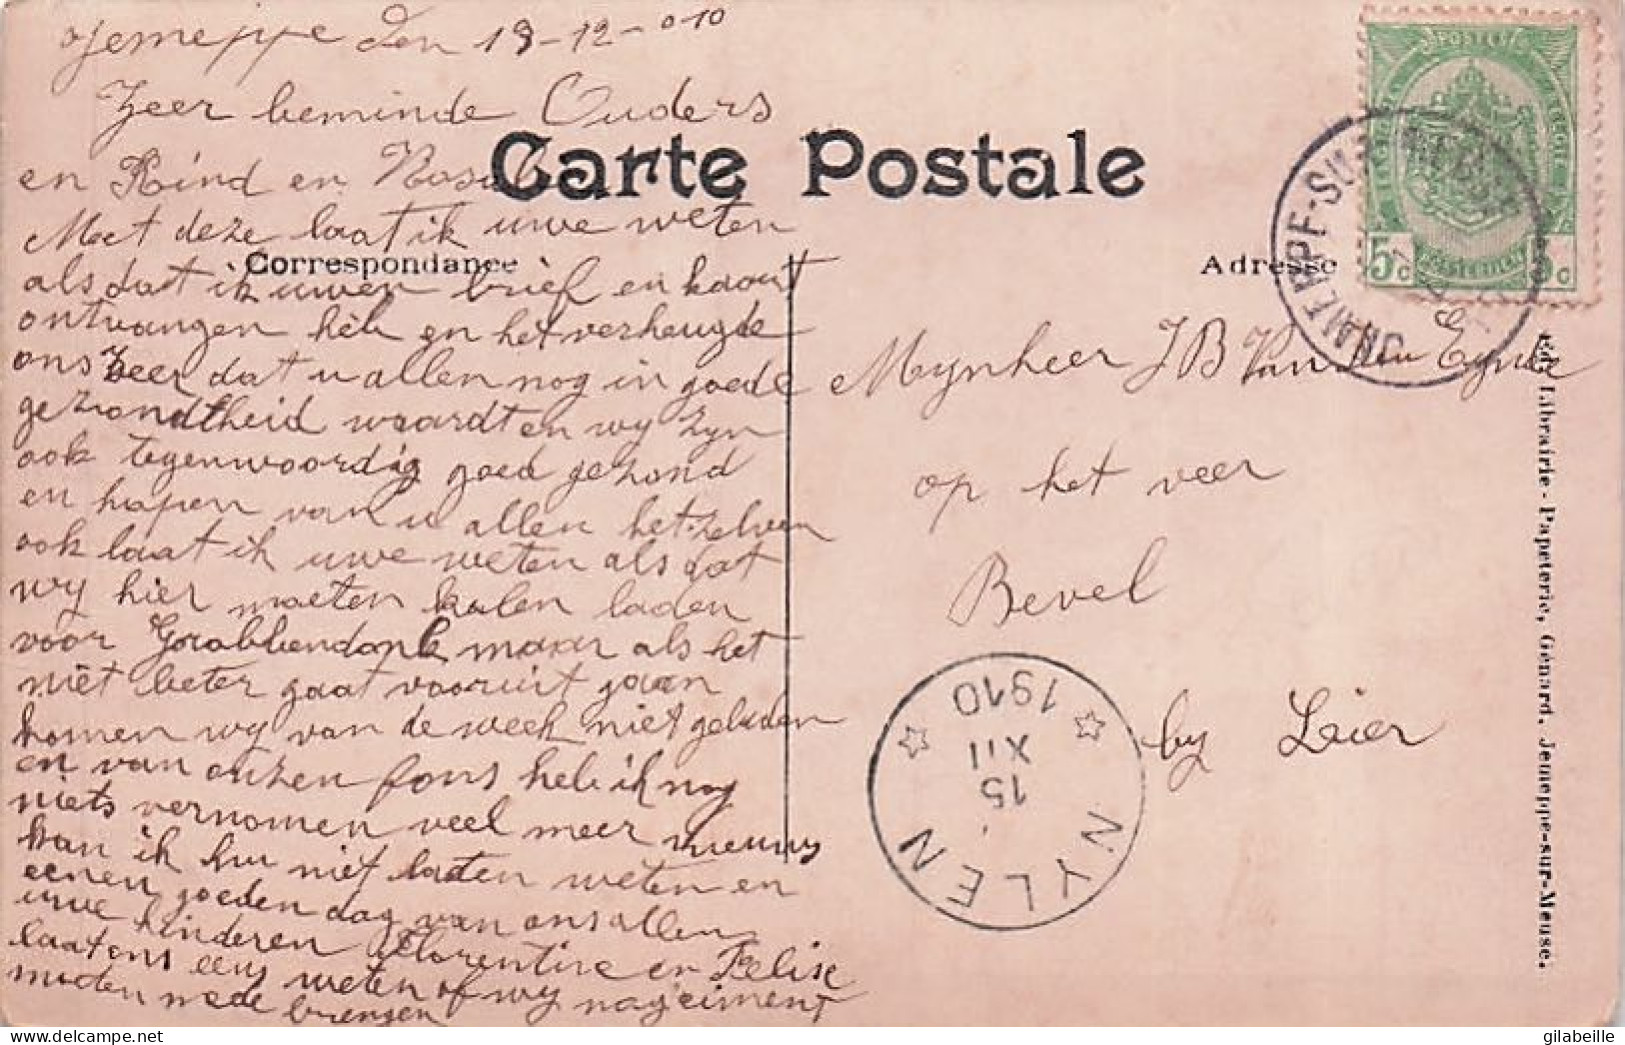 Jemeppe den 13-12-010
Zeer beminde Ouders
en Kind en
Carte Postale
Met deze laat ik uwe weten
Correspondance
als dat ik uwen brief en kaart
ontvangen heb en het verheugde
ons zeer dat u allen nog in goede
gezondtheid waardt en wy zyn
ook tegenwoordig goed gezond
en hopen van u allen hetzelven
ook laat ik uwe weten als dat
wy hier moeten kolen laden
voor Grobbendonk maar als het
niet beter gaat vooruit gaan
komen wy van de week niet geladen
en van onzen fons heb ik nog
niets vernomen veel meer nieuws
kan ik hu niet laaten weten en
eenen goeden dag van ons allen
uwe kinderen Florentine en Felise
laat ons eens weten of wy nog ciment
moeten mede brengen
POSTES
5c
POSTERIJEN
5c
JEMEPPE-SUR-MEUSE
Adresse
Mynheer JB Van den Eynde
op het veer
Bevel
by Lier
NYLEN
15
XII
1910
Ed. Librairie - Papeterie, Génard, Jemeppe-sur-Meuse.
gilabeille